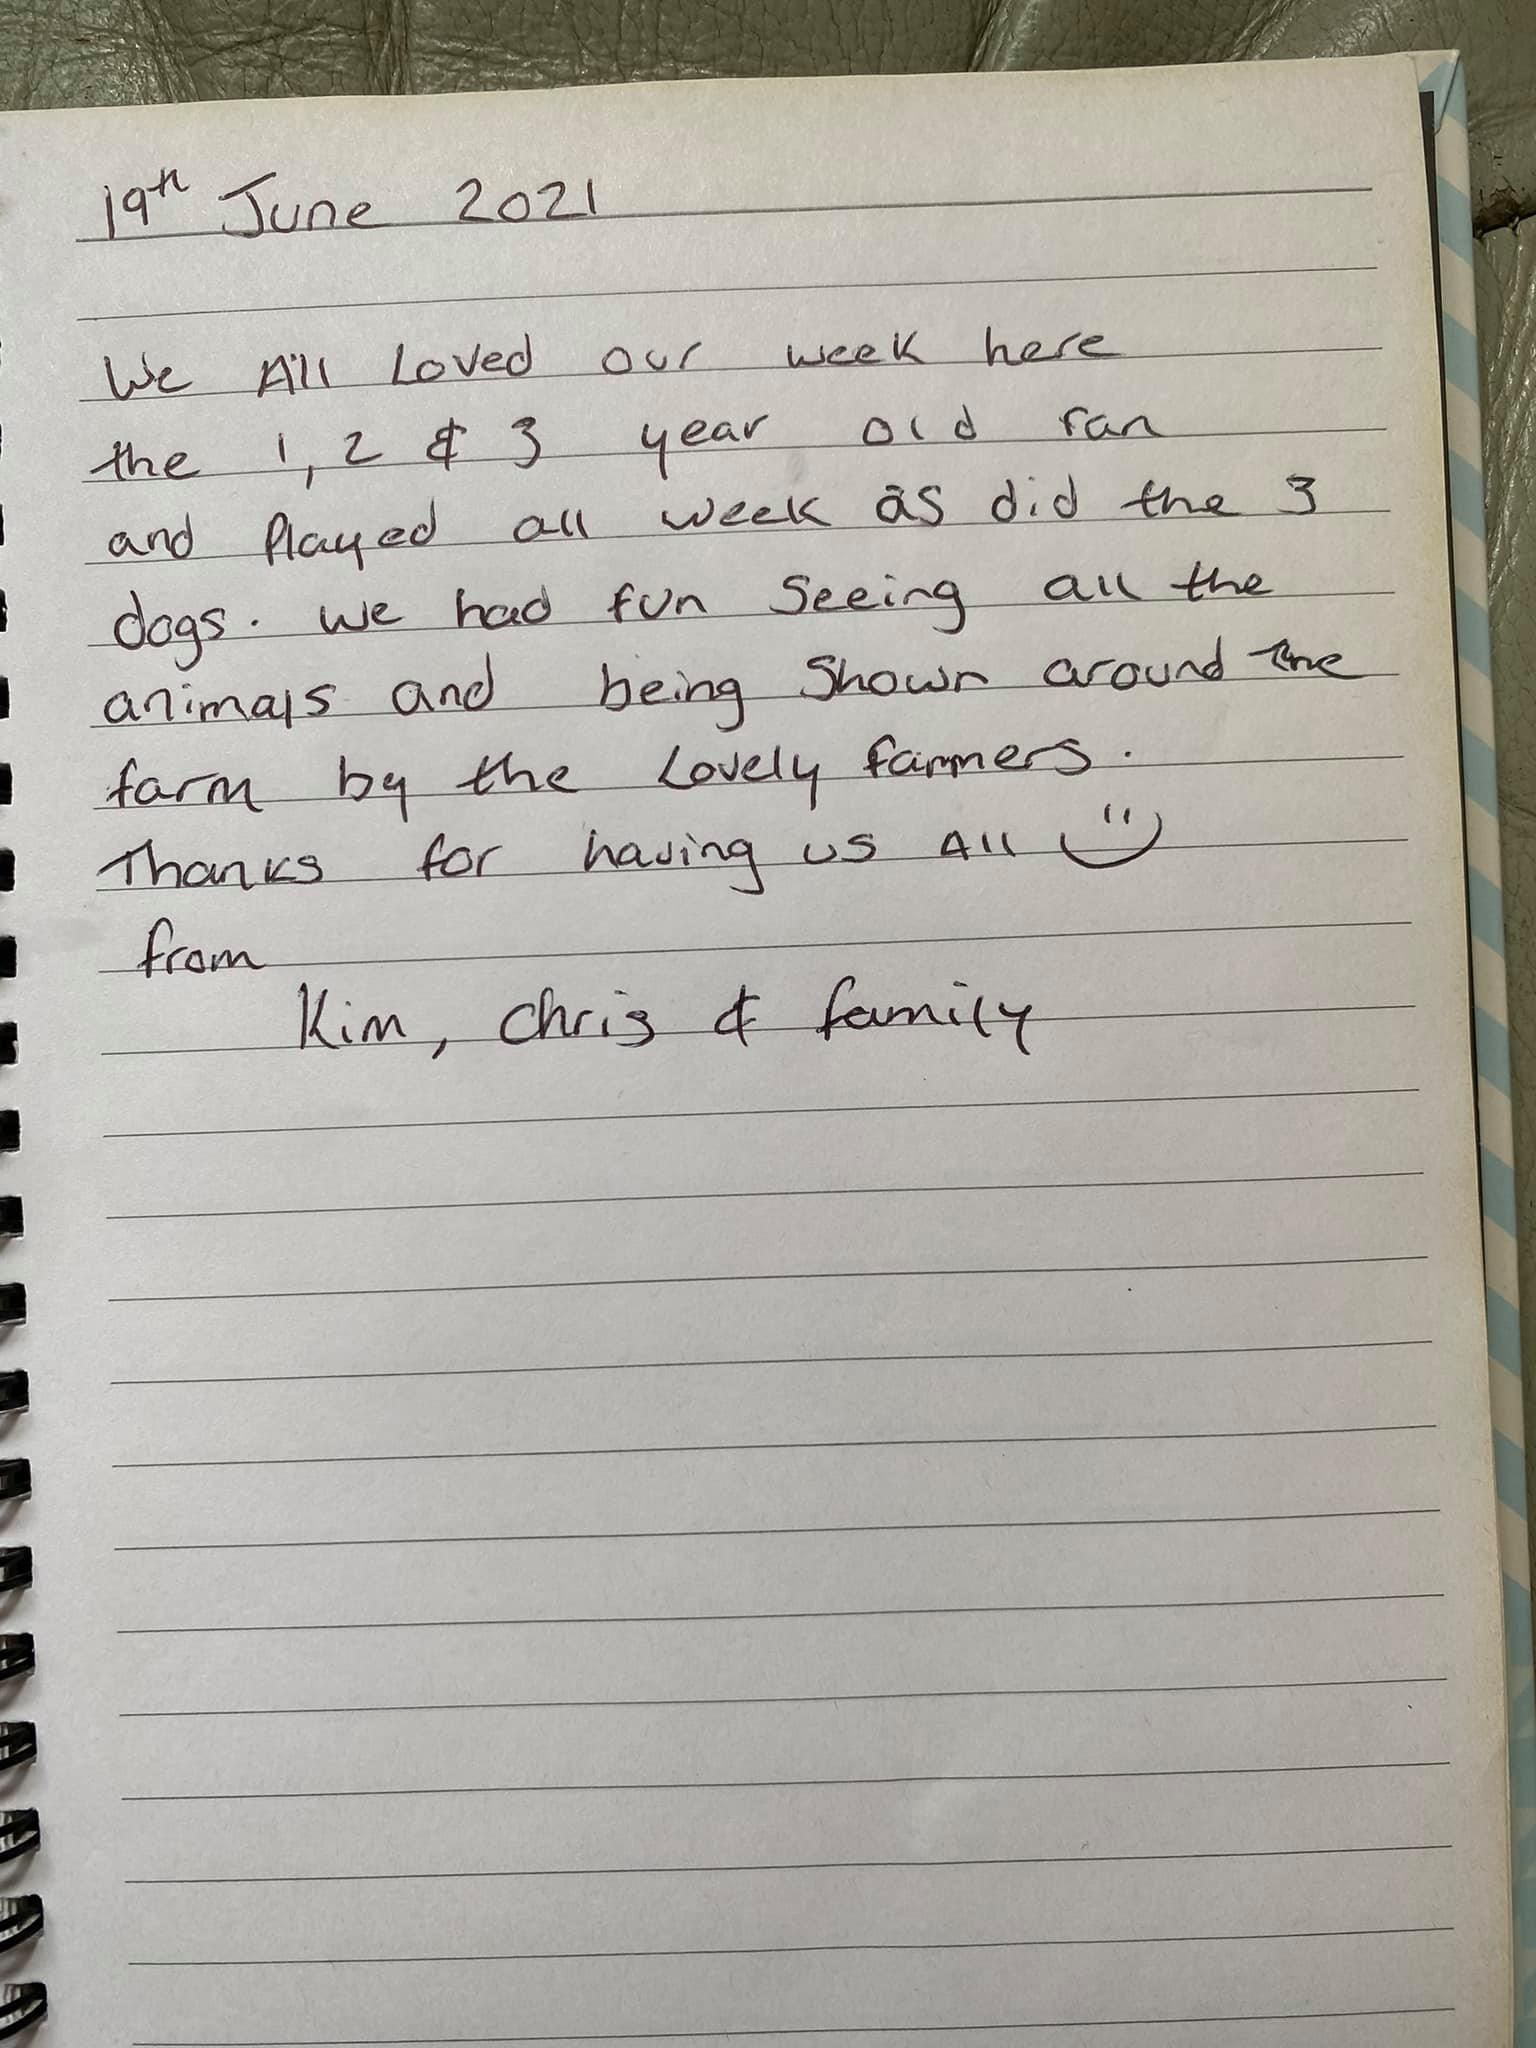 19th June 2021
We All Loved our week here
the 1, 2 & 3 year old ran
and Played all week as did the 3
dogs. We had fun Seeing all the
animals and being Shown around the
farm by the Lovely farmers.
Thanks for having us All
from
Kim, Chris & family